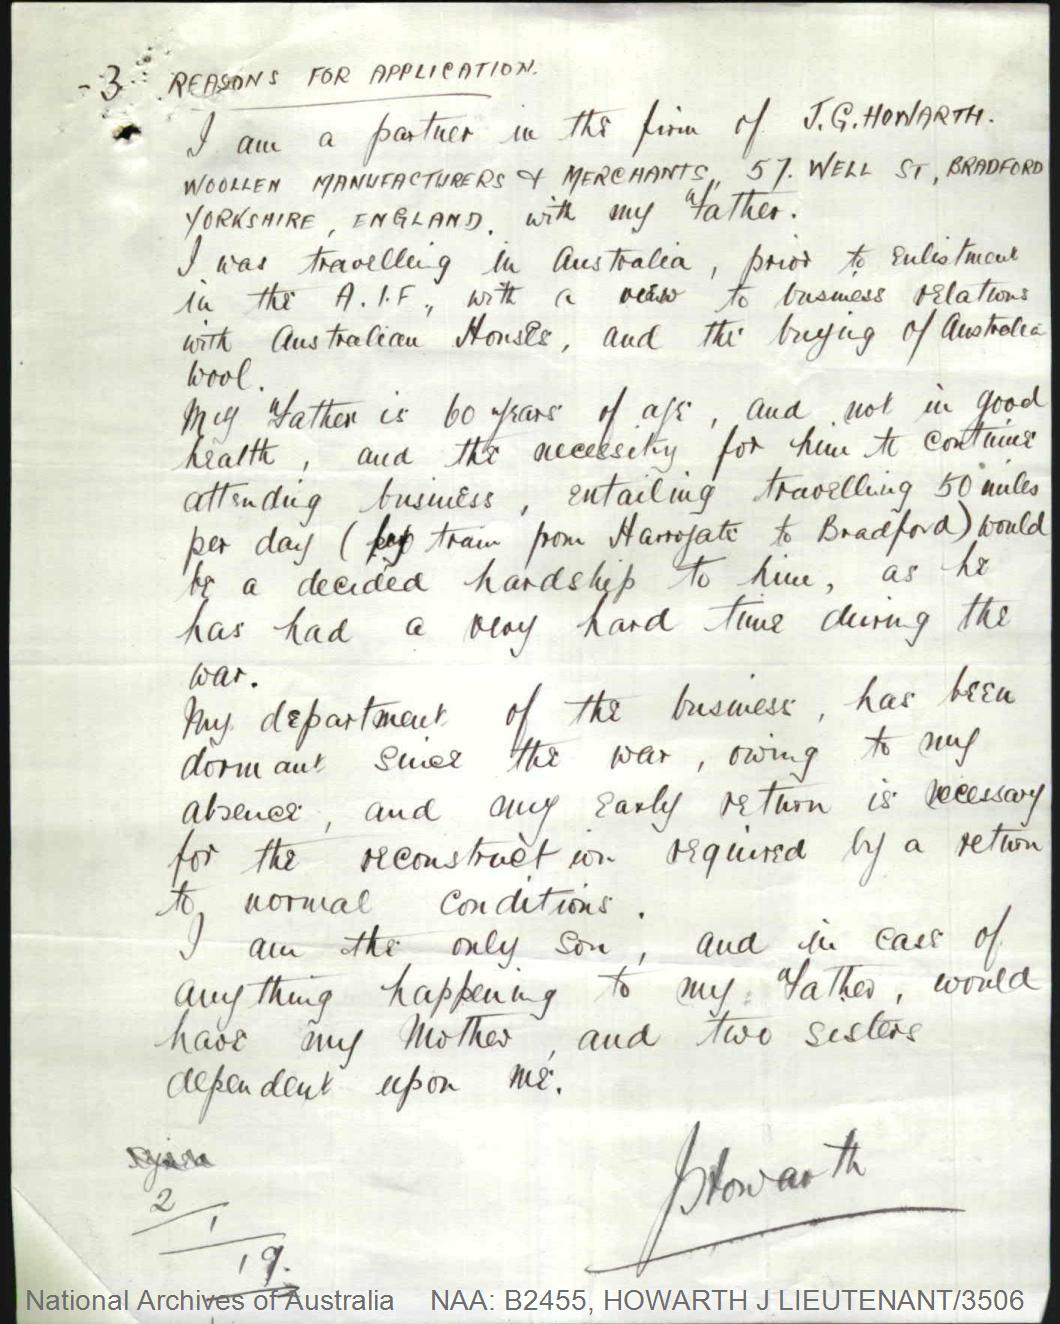 -3. REASONS FOR APPLICATION.
I am a partner in the firm of J.G. HOWARTH.
WOOLLEN MANUFACTURERS & MERCHANTS, 57. WELL ST, BRADFORD
YORKSHIRE, ENGLAND, with my Father.
I was travelling in Australia, prior to enlistment
in the A.I.F., with a view to business relations
with Australian Houses, and the buying of Australia
wool.
My Father is 60 years of age, and not in good
health, and the necessity for him to continue
attending business, entailing travelling 50 miles
per day (by train from Harrogate to Bradford) would
be a decided hardship to him, as he
has had a very hard time during the
war.
My department of the business, has been
dormant since the war, owing to my
absence, and my early return is necessary
for the reconstruction required by a return
to normal conditions.
I am the only son, and in case of
anything happening to my Father, would
have my Mother, and two sisters
dependent upon me.
JHowarth
2/1/19.
National Archives of Australia NAA: B2455, HOWARTH J LIEUTENANT/3506